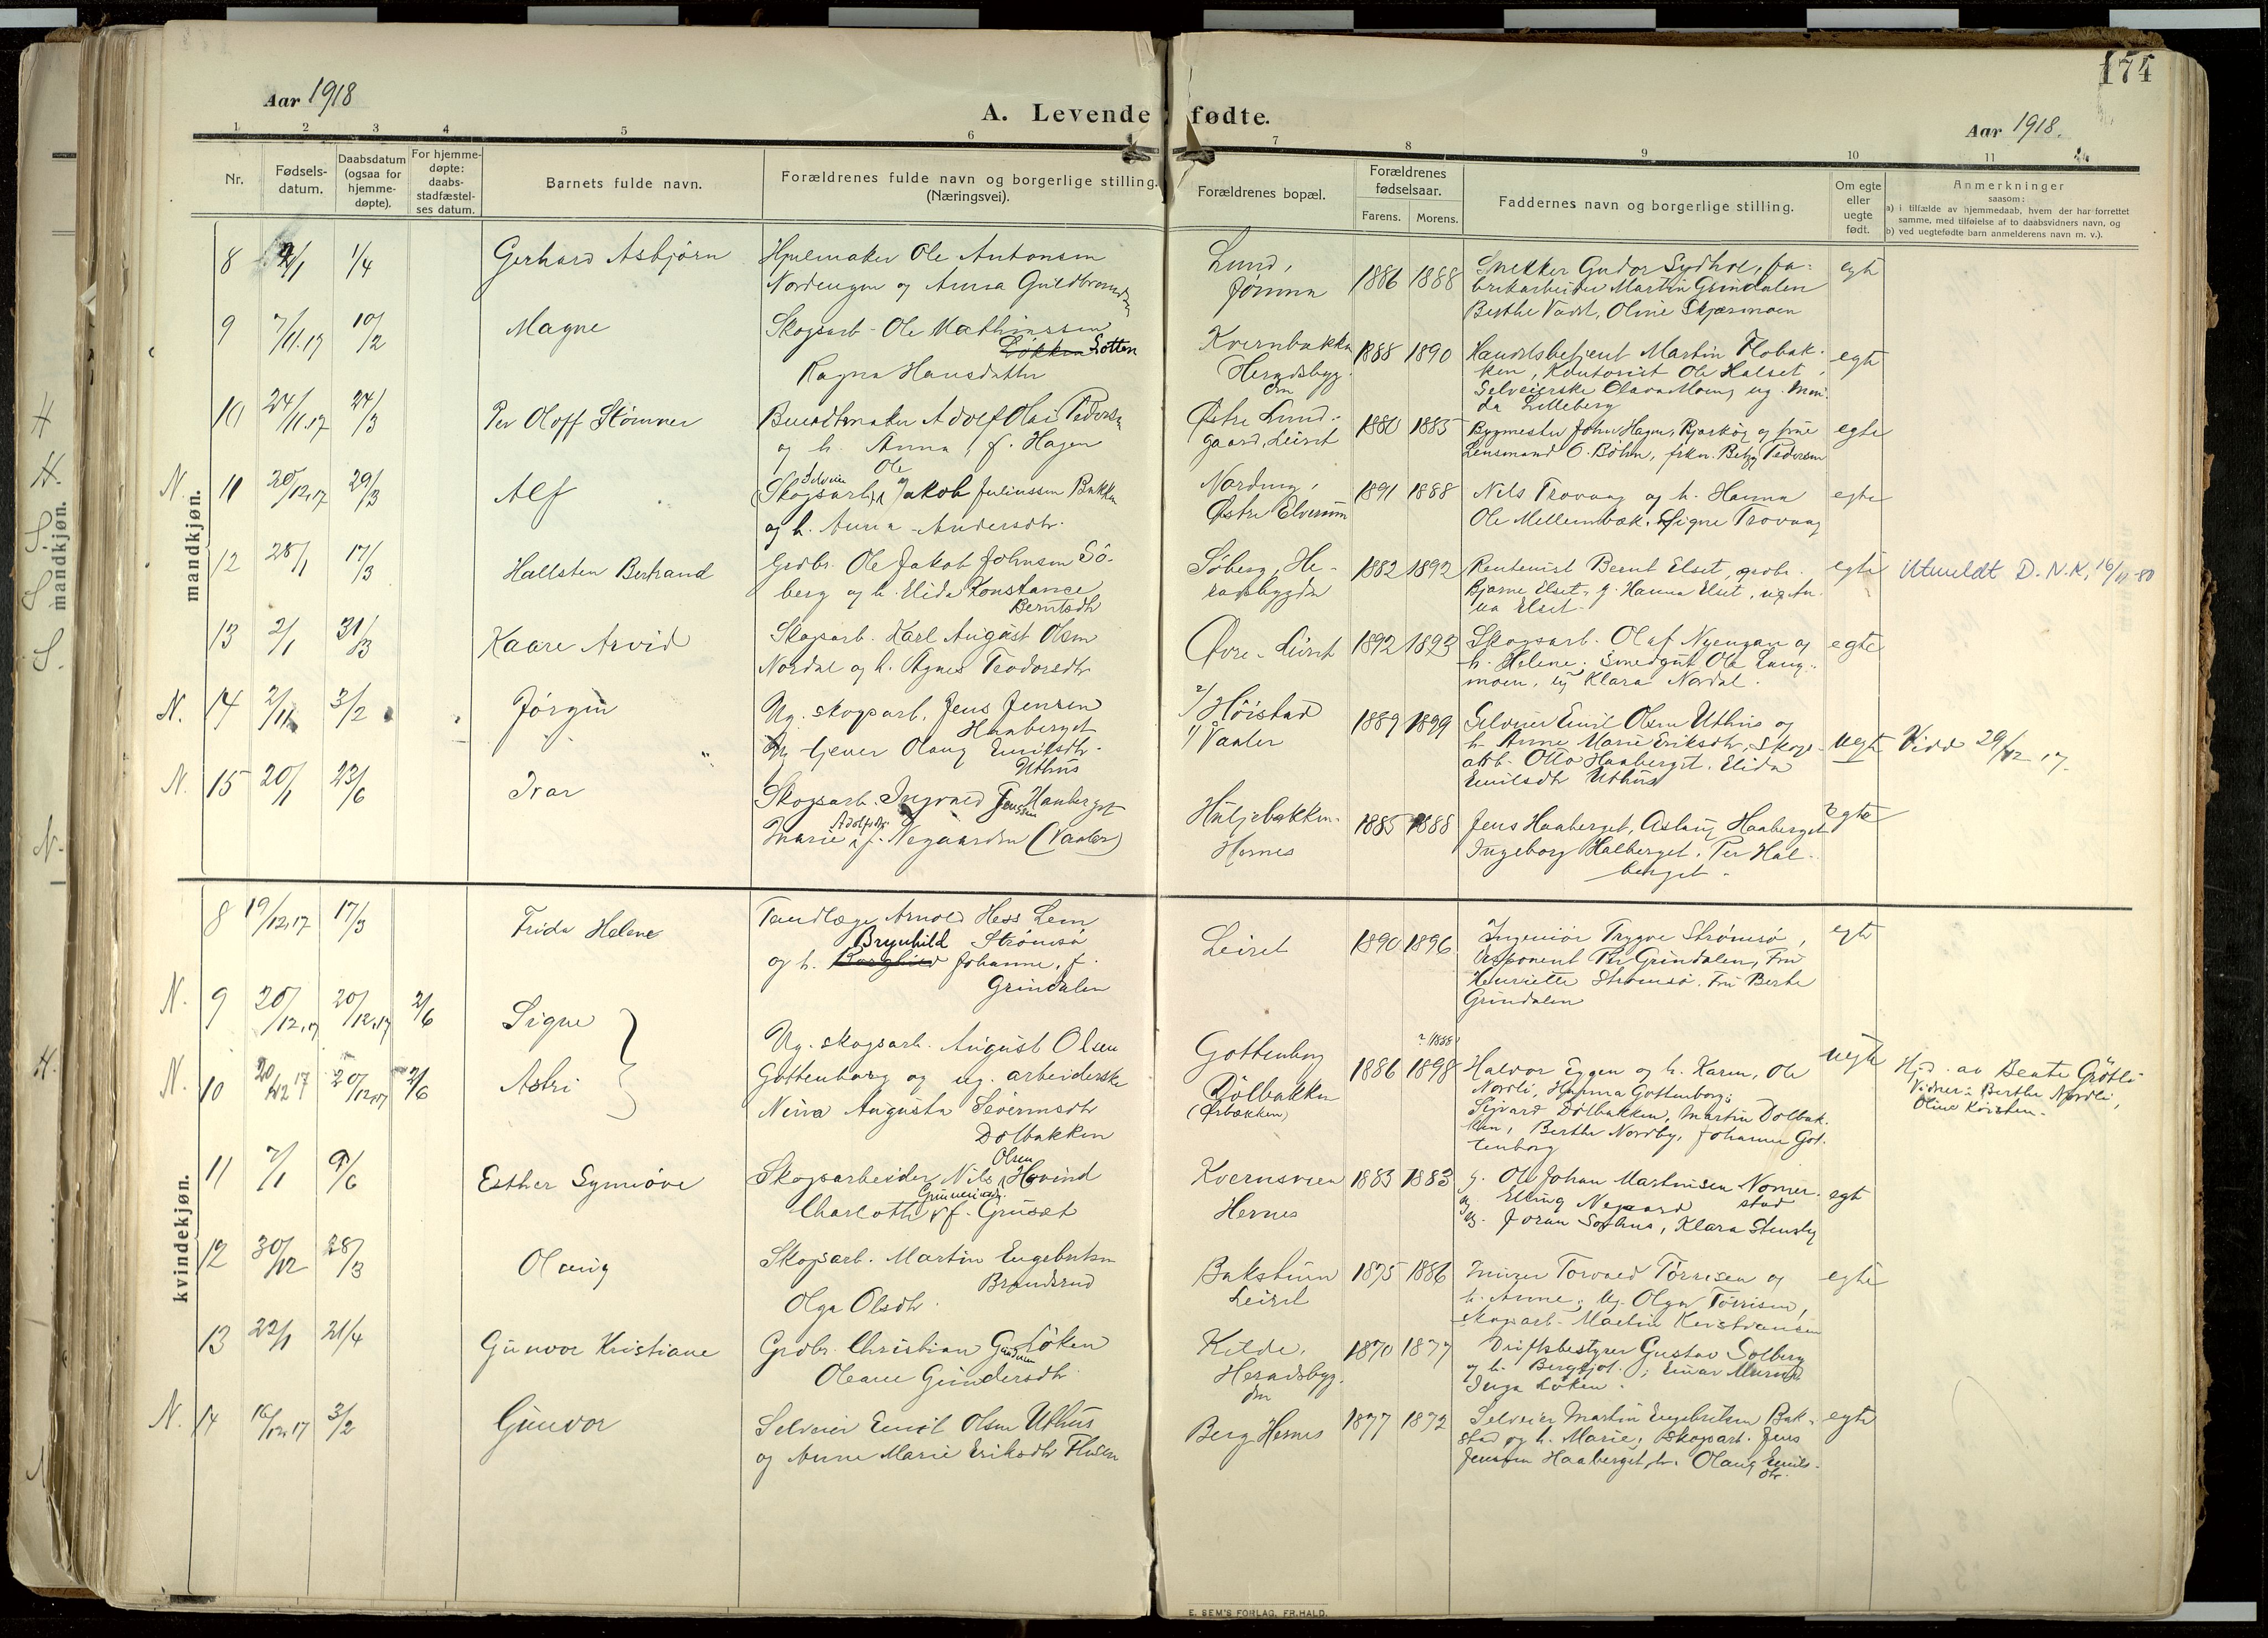 174
Aar 1918
A. Levende fødte.
Aar 1918.
1 2 3 4 5 6 7 8 9 10 11
Nr.
Fødsels-
datum.
Daabsdatum
(ogsaa for
hjemme-
døpte).
For hjemme-
døpte:
daabs-
stadfæstel-
ses datum.
Barnets fulde navn.
Forældrenes fulde navn og borgerlige stilling.
(Næringsvei).
Forældrenes bopæl.
Forældrenes
fødselsaar.
Farens. Morens.
Faddernes navn og borgerlige stilling.
Om egte
eller
uegte
født.
Anmerkninger
saasom:
a) i tilfælde av hjemmedaab, hvem der har forrettet
samme, med tilføielse af to daabsvidners navn, og
b) ved uegtefødte barn anmelderens navn m. v.).
mandkjøn.
8 1/4 Gerhard Asbjørn
Hjulmaker Ole Antonsen
Nordengen og Anna Guldbrandsen
Lund,
Jømna
1886 1888
Snekker Gudor Sydhve, fa-
brikarbeider Martin Grindalen
Berthe Vadst, Oline Skjærmoen
egte
9 7/11.17 10/2 Magne
Skogsarb. Ole Mathinssen
Løkken Sotten
Ragna Hansdatter
Kvernbakken
Heradsbyg
den
1888 1890
Handelsbetjent Martin Flobak-
ken, Kontorist Ole Halset,
Selveierske Olava Moen, ug.
da Lilleberg
egte
10 24/11.17 24/3 Per Oloff Stømner
Buntmaker Adolf Olai Pedersen
og h. Anna, f. Hagen
Østre Lund-
gaard, Leiret
1880 1885
Bygmester John Hagen, Bjarkøy og frue
Lensmand O. Bøhn, frkn. Betzy Pedersen
egte
N. 11 20/12.17 29/3 Alf
Selveier Ole
(Skogsarb.) og Jakob Juliussen Bakken
og h. Anna Andersdtr.
Nordeng,
Østre Elverum
1891 1888
Nils Trovaag og h. Hanna
Ole Mellembæk. Signe Trovaag
egte
12 28/1 17/3 Hallsten Bertrand
Grdbr. Ole Jakob Johnsen Sö-
berg og h. Elida Konstance
Berntsdtr
Söberg, He-
radsbygden
1882 1892
Rentenist Bernt Elset, grdbr.
Bjarne Elset, g. Hanna Elset, ug. An-
na Elset.
egte
Utmeldt D. N. K. 16/11-80
13 2/1 31/3 Kaare Arvid
Skogsarb. Karl August Olsen
Nordal og h. Agnes Teodorsdtr
Øvre Leiret
1892 1893
Skogsarb. Olaf Nyengen og
h. Helene. Smedgut Ole Lang-
moen, ug Klara Nordal.
egte
N. 14 2/11 3/2 Jörgen
Ug. skogsarb. Jens Jensen
Haaberget
Ug tjener Olaug Emilsdtr.
Uthus
2/ Höistad
1/ Vaaler
1889 1899
Selveier Emil Olsen Uthus og
h. Anne Marie Eriksdtr, skogs-
arb. Otto Haaberget. Elida
Emilsdtr Uthus
uegte
29/12 17.
N. 15 20/1 23/6 Ivar
Skogsarb. Ingvald Jenssen Haaberget
Marie Adolfsdtr. f. Nygaarden (Vaaler)
Huljebakken
Hernes
1885 1888
Jens Haaberget, Aslaug Haaberget
Ingeborg Halberget. Per Hal-
berget.
Egte
kvindekjøn.
8 19/12.17 17/3 Frida Helene
Tandlæge Arnold Hess Lem
Brynhild Strömsö
og h. Borghild Johanne, f.
Grindalen
Leiret
1890 1896
Ingeniör Trygve Strömsö,
disponent Per Grindalen, Fru
Henriette Strömsö. Fru Berthe
Grindalen
egte
N. 9 20/12.17 20/12.17 2/6 Signe
N. 10 20/12 17 20/12.17 2/6 Astri
Ug. skogsarb. August Olsen
Gottenborg og ug. arbeiderske
Nina Augusta Severinsdtr
Dolbakken
Gottenborg
Dölbakken
1886 1898
? 1888
Halvor Eggen og h. Karen, Ole
Nordli, Hanna Gottenborg;
Sigvard Dölbakken, Martin Dolbak-
ken, Berthe Nordby, Johanne Got-
tenborg
uegte
Hjd. av Beate Grötli
Vidner: Berthe Nordli,
Oline
11 7/1 9/6 Esther Synnöve
Skogsarbeider Nils Olsen Hovind
Charlotte Gunneriusdtr. f. Gruset
Kvernsveen
Hernes
1883 1883
g. Ole Johan Martinsen Nomer-
stad
ug. Elling Negaard
ug. Joran Sorhus, Klara Stensby
egte
12 30/12 28/3 Olaug
Skogsarb. Martin Engebretsen
Brandsrud
Olga Olsdtr.
Bakstuen
Leiret
1875 1886
Murer Torvald Törrisen og
h. Anne; Ug. Olga Törrisen,
skogsarb. Martin Kristiansen
egte
13 22/1 21/4 Gunvor Kristiane
Grdbr. Christian Gundersen Löken
Oleane Gundersdtr
Kilde,
Heradsbyg-
den
1870 1877
Driftsbestyrer Gustav Solberg
og h. Bergljot; Einar
Inga Löken.
N. 14 16/12.17 3/2 Gunvor
Selveier Emil Olsen Uthus
og Anne Marie Eriksdtr
Berg Hernes
1877 1872
Selveier Martin Engebretsen Bak-
stad og h. Marie, skogsarb. Jens
Jensen Haaberget, tr. Olaug Emils-
dtr.
egte
E. SEM'S FORLAG, FR.HALD.